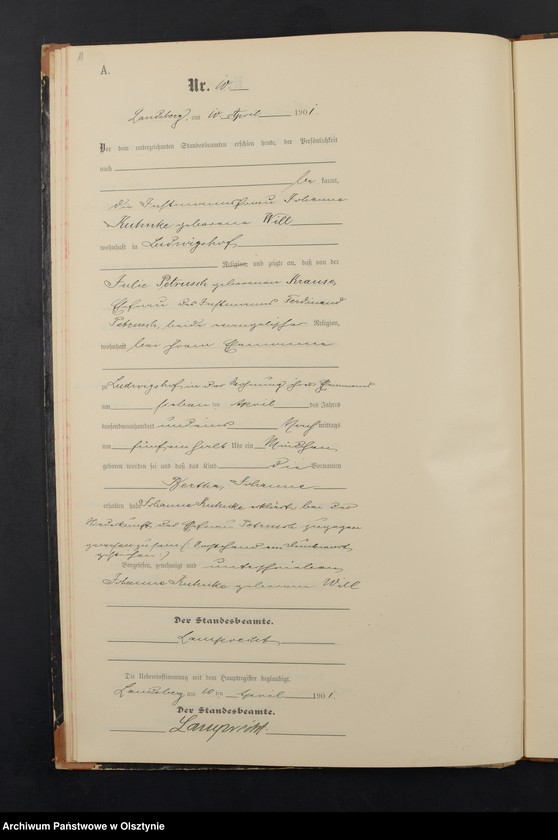 A.
Nr. 10
Landsberg, am 10 April 1901.
Vor dem unterzeichneten Standesbeamten erschien heute, der Persönlichkeit
nach
be kannt,
die Instmannsfrau Johanne
Kuhnke geborene Will
wohnhaft in Ludwigshof
Religion, und zeigte an, daß von der
Julie Petrusch geborenen Krause,
Ehefrau des Instmanns Ferdinand
Petrusch, beide evangelischer Religion,
wohnhaft bei ihrem Ehemanne
zu Ludwigshof, in der Wohnung ihres Ehemanns
am sieben ten April des Jahres
tausendneunhundert und eins Nach mittags
um fünfeinhalb Uhr ein Mädchen
geboren worden sei und daß das Kind die Vornamen
Bertha, Johanne
erhalten habe. Johanne Kuhnke erklärte bei der
Niederkunft der Ehefrau Petrusch zugegen
gewesen zu sein. ( am Druckrand
gestrichen.)
Vorgelesen, genehmigt und unterschrieben
Johanne Kuhnke geborene Will
Der Standesbeamte.
Lamprecht
Die Uebereinstimmung mit dem Hauptregister beglaubigt.
Landsberg, am 10 ten April 1901.
Der Standesbeamte.
Lamprecht.
Archiwum Państwowe w Olsztynie